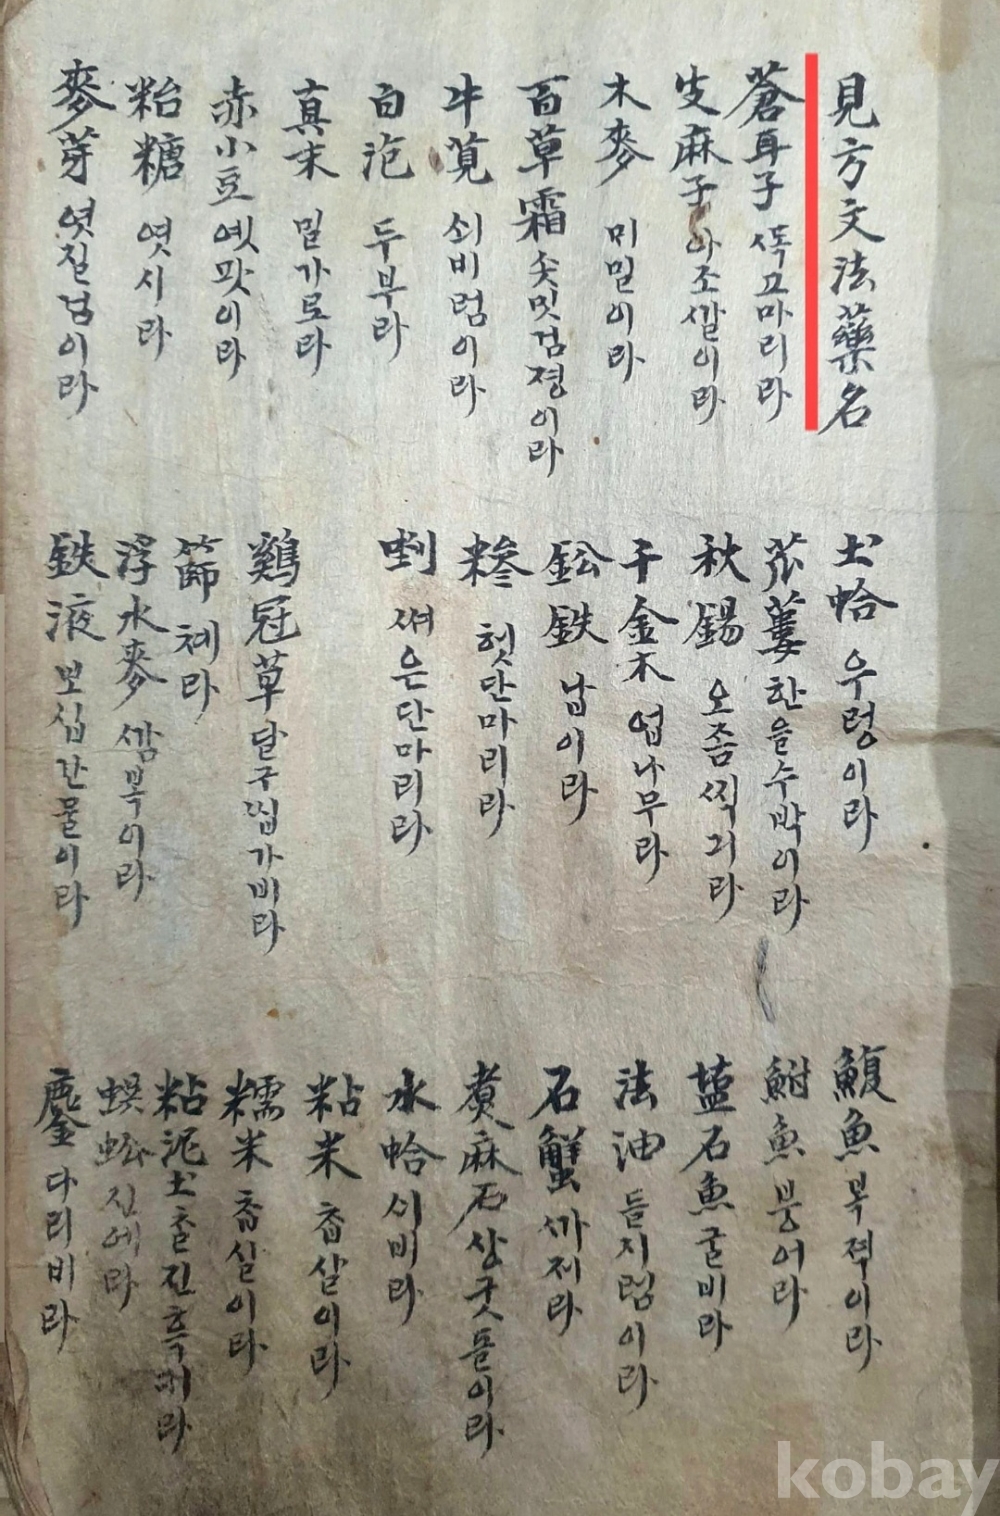 見方文法藥名
蒼耳子 ᄯᅩᆨ고마리라
麻子 아조ᄭᅡᆯ이라
木麥 미밀이라
百草霜 솟밋검졍이라
牛莧 쇠비럼이라
白泡 두부라
真末 밀가로라
赤小豆 예팟이라
粉糖 엿시라
麥芽 엿질넘이라
土蛤 우렁이라
苽蔞 한을수박이라
秋錫 오좀ᄶᅵᆨ긔라
千金木 엄나무라
鈆鉄 납이라
糁 헷단마리라
써은단마리라
鷄冠草 달구ᄯᅵᆸ가비라
篩 체라
浮水麥 ᄭᅡᆷ복이라
鉄液 보십간물이라
鰒魚 복젹이라
鮒魚 붕어라
塩石魚 굴비라
法油 들지렴이라
石蟹 ᄭᅡ제라
煑麻石 상굿돌이라
水蛤 시비라
粘米 찹살이라
糯米 찹살이라
粘泥土 찰진흑
蜈蚣 진에라
다리비라
kobay